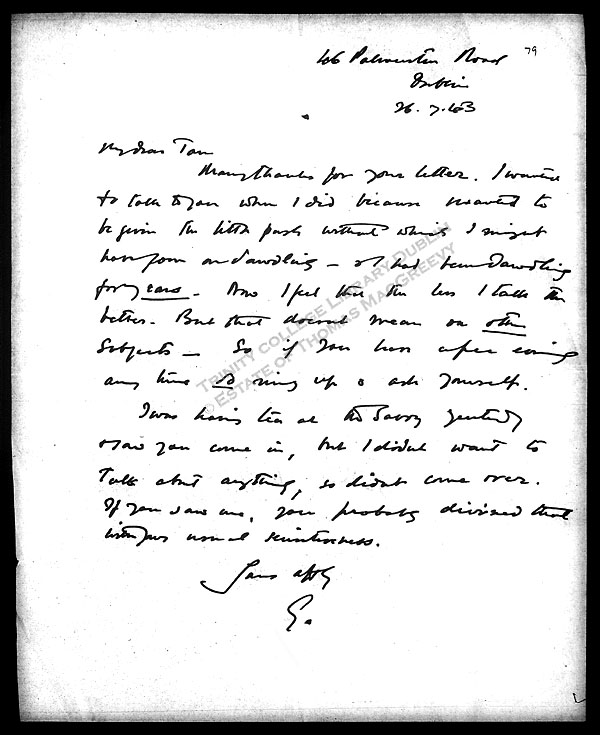 46 Palmerston Road
79
Dublin
26.7.43
My dear Tom
Many thanks for your letter. I wanted
to talk to you when I did because I wanted to
be given the little push without which I might
have gone on dawdling – as I had been dawdling
for years. Now I feel that the less I talk the
better. But that doesn't mean on other
subjects – So if you have a free evening
any time do ring up & ask yourself.
I was having tea at the Savoy yesterday
& saw you come in, but I didn't want to
talk about anything, so didn't come over.
If you saw me, you probably divined that
with your usual sensitiveness.
Yours affly
G.
TRINITY COLLEGE LIBRARY DUBLIN
© ESTATE OF THOMAS MACGREEVY